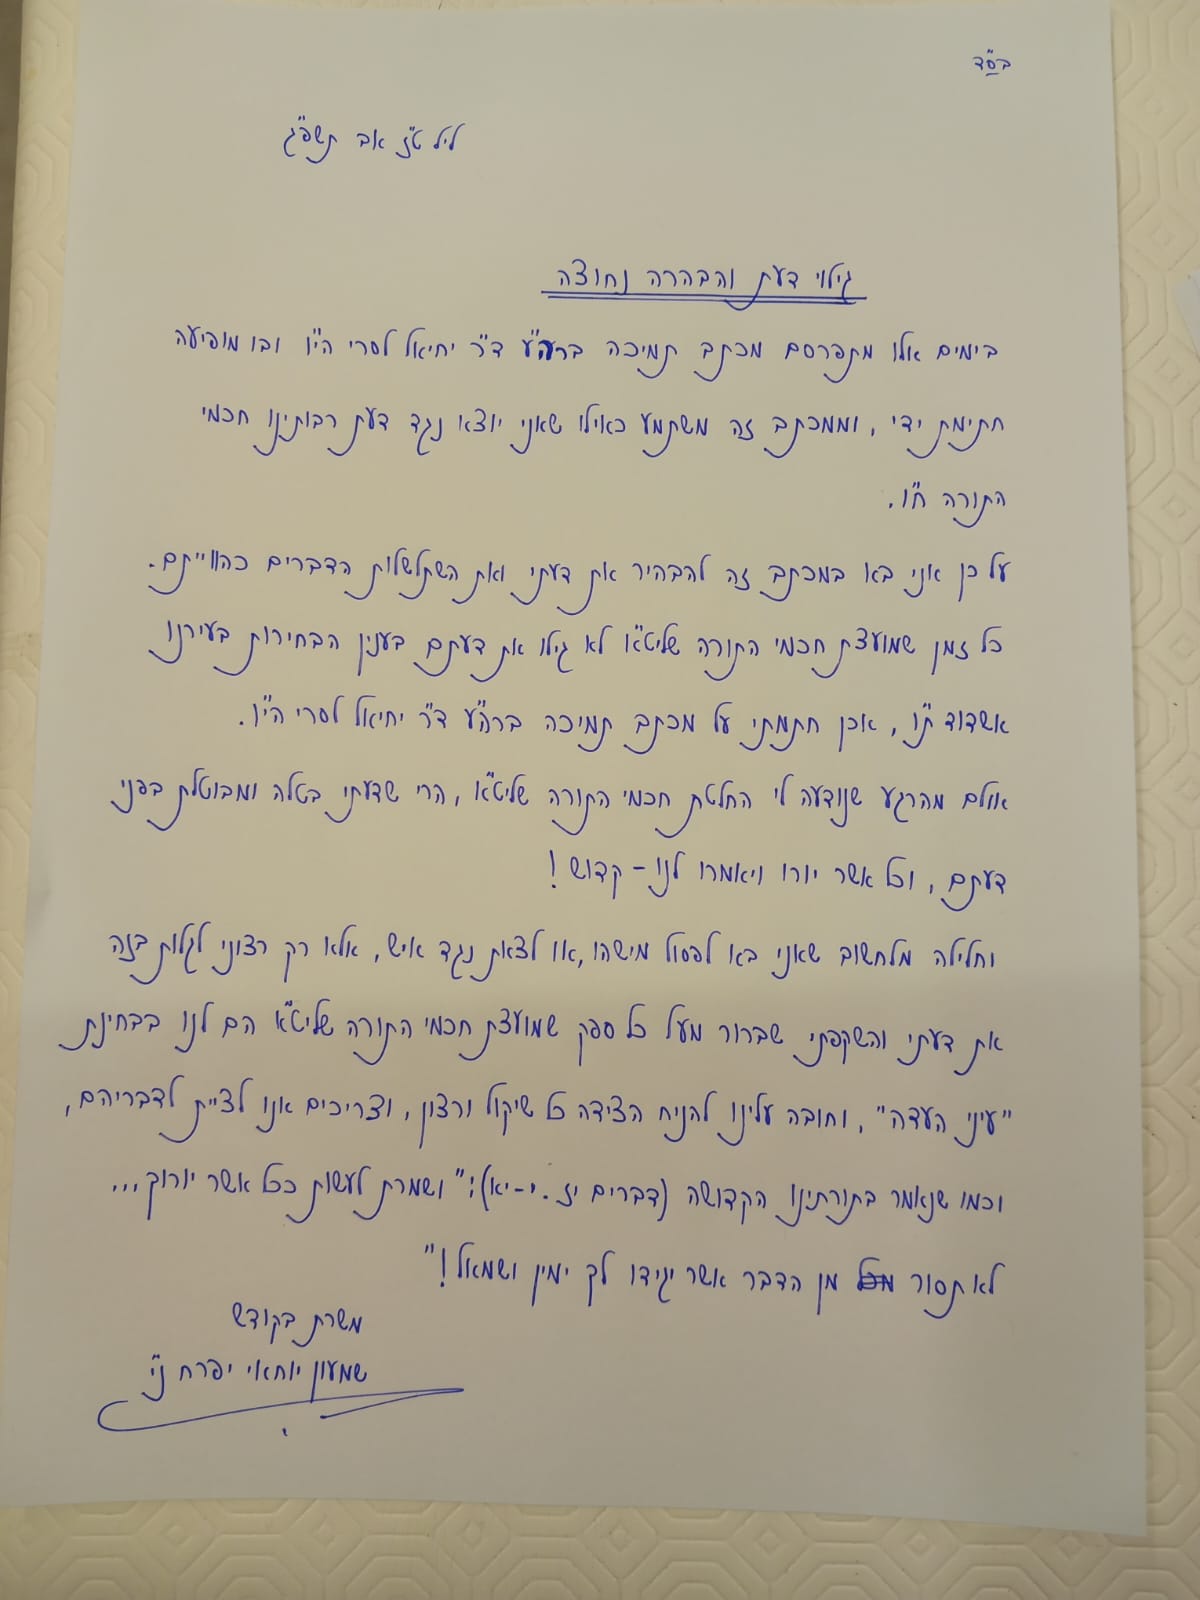 בס"ד
ליל ט"ז אב תשפ"ג
גילוי דעת והבהרה נחוצה
בימים אלו מתפרסם מכתב תמיכה ברה"ע ד"ר יחיאל לסרי הי"ו ובו מופיעה
חתימת ידי, וממכתב זה משתמע כאילו שאני יוצא נגד דעת רבותינו חכמי
התורה ח"ו.
על כן אני בא במכתב זה להבהיר את דעתי ואת השתלשלות הדברים כהווייתם.
כל זמן שמועצת חכמי התורה שליט"א לא גילו את דעתם בענין הבחירות בעירנו
אשדוד ת"ו, אכן חתמתי על מכתב תמיכה ברה"ע ד"ר יחיאל לסרי הי"ו.
אולם מהרגע שנודעה לי החלטת חכמי התורה שליט"א, הרי שדעתי בטלה ומבוטלת בפני
דעתם, וכל אשר יורו ויאמרו לנו - קדוש!
וחלילה מלחשוב שאני בא לפסול מישהו, או לצאת נגד איש, אלא רק רצוני לגלות בזה
את דעתי והשקפתי שברור מעל כל ספק שמועצת חכמי התורה שליט"א הם לנו בבחינת
"עיני העדה", וחובה עלינו להניח הצידה כל שיקול ורצון, וצריכים אנו לציית לדבריהם,
וכמו שנאמר בתורתינו הקדושה (דברים יז. י-יא): "ושמרת לעשות ככל אשר יורוך...
לא תסור מן הדבר אשר יגידו לך ימין ושמאל!"
משרת בקודש
שמעון יוחאי יפרח ני"